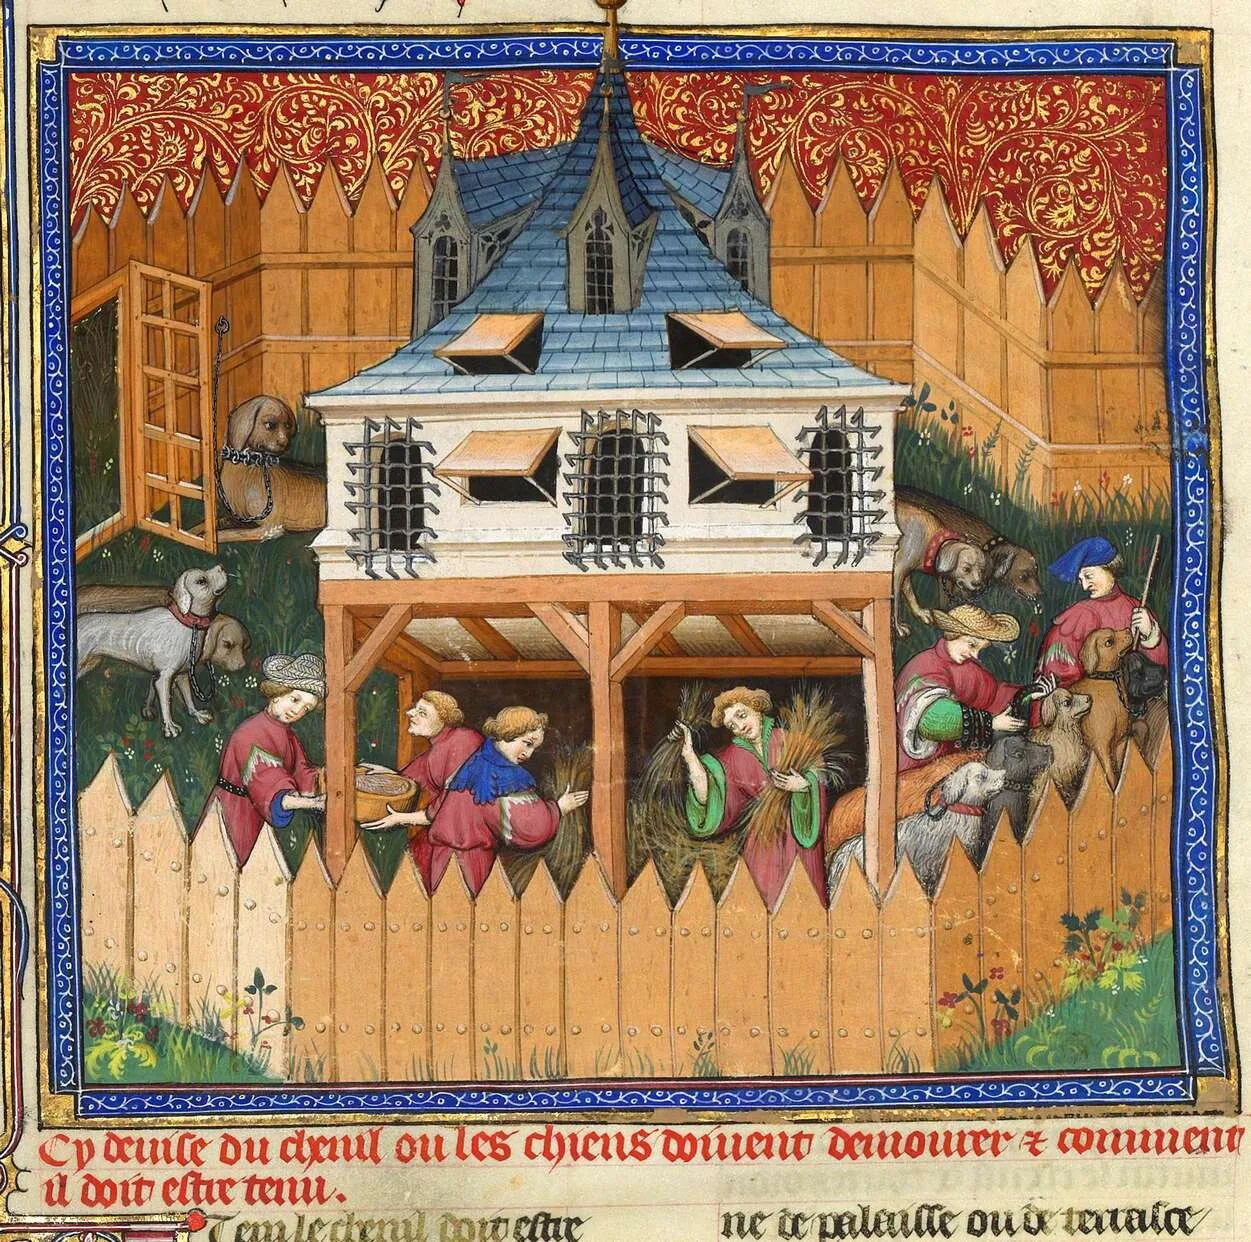 Cy devise du chenil ou les chiens doivent demourer & comment
il doit estre tenu.
Item le chenil doit estre
ne de palensse ou de terrasce